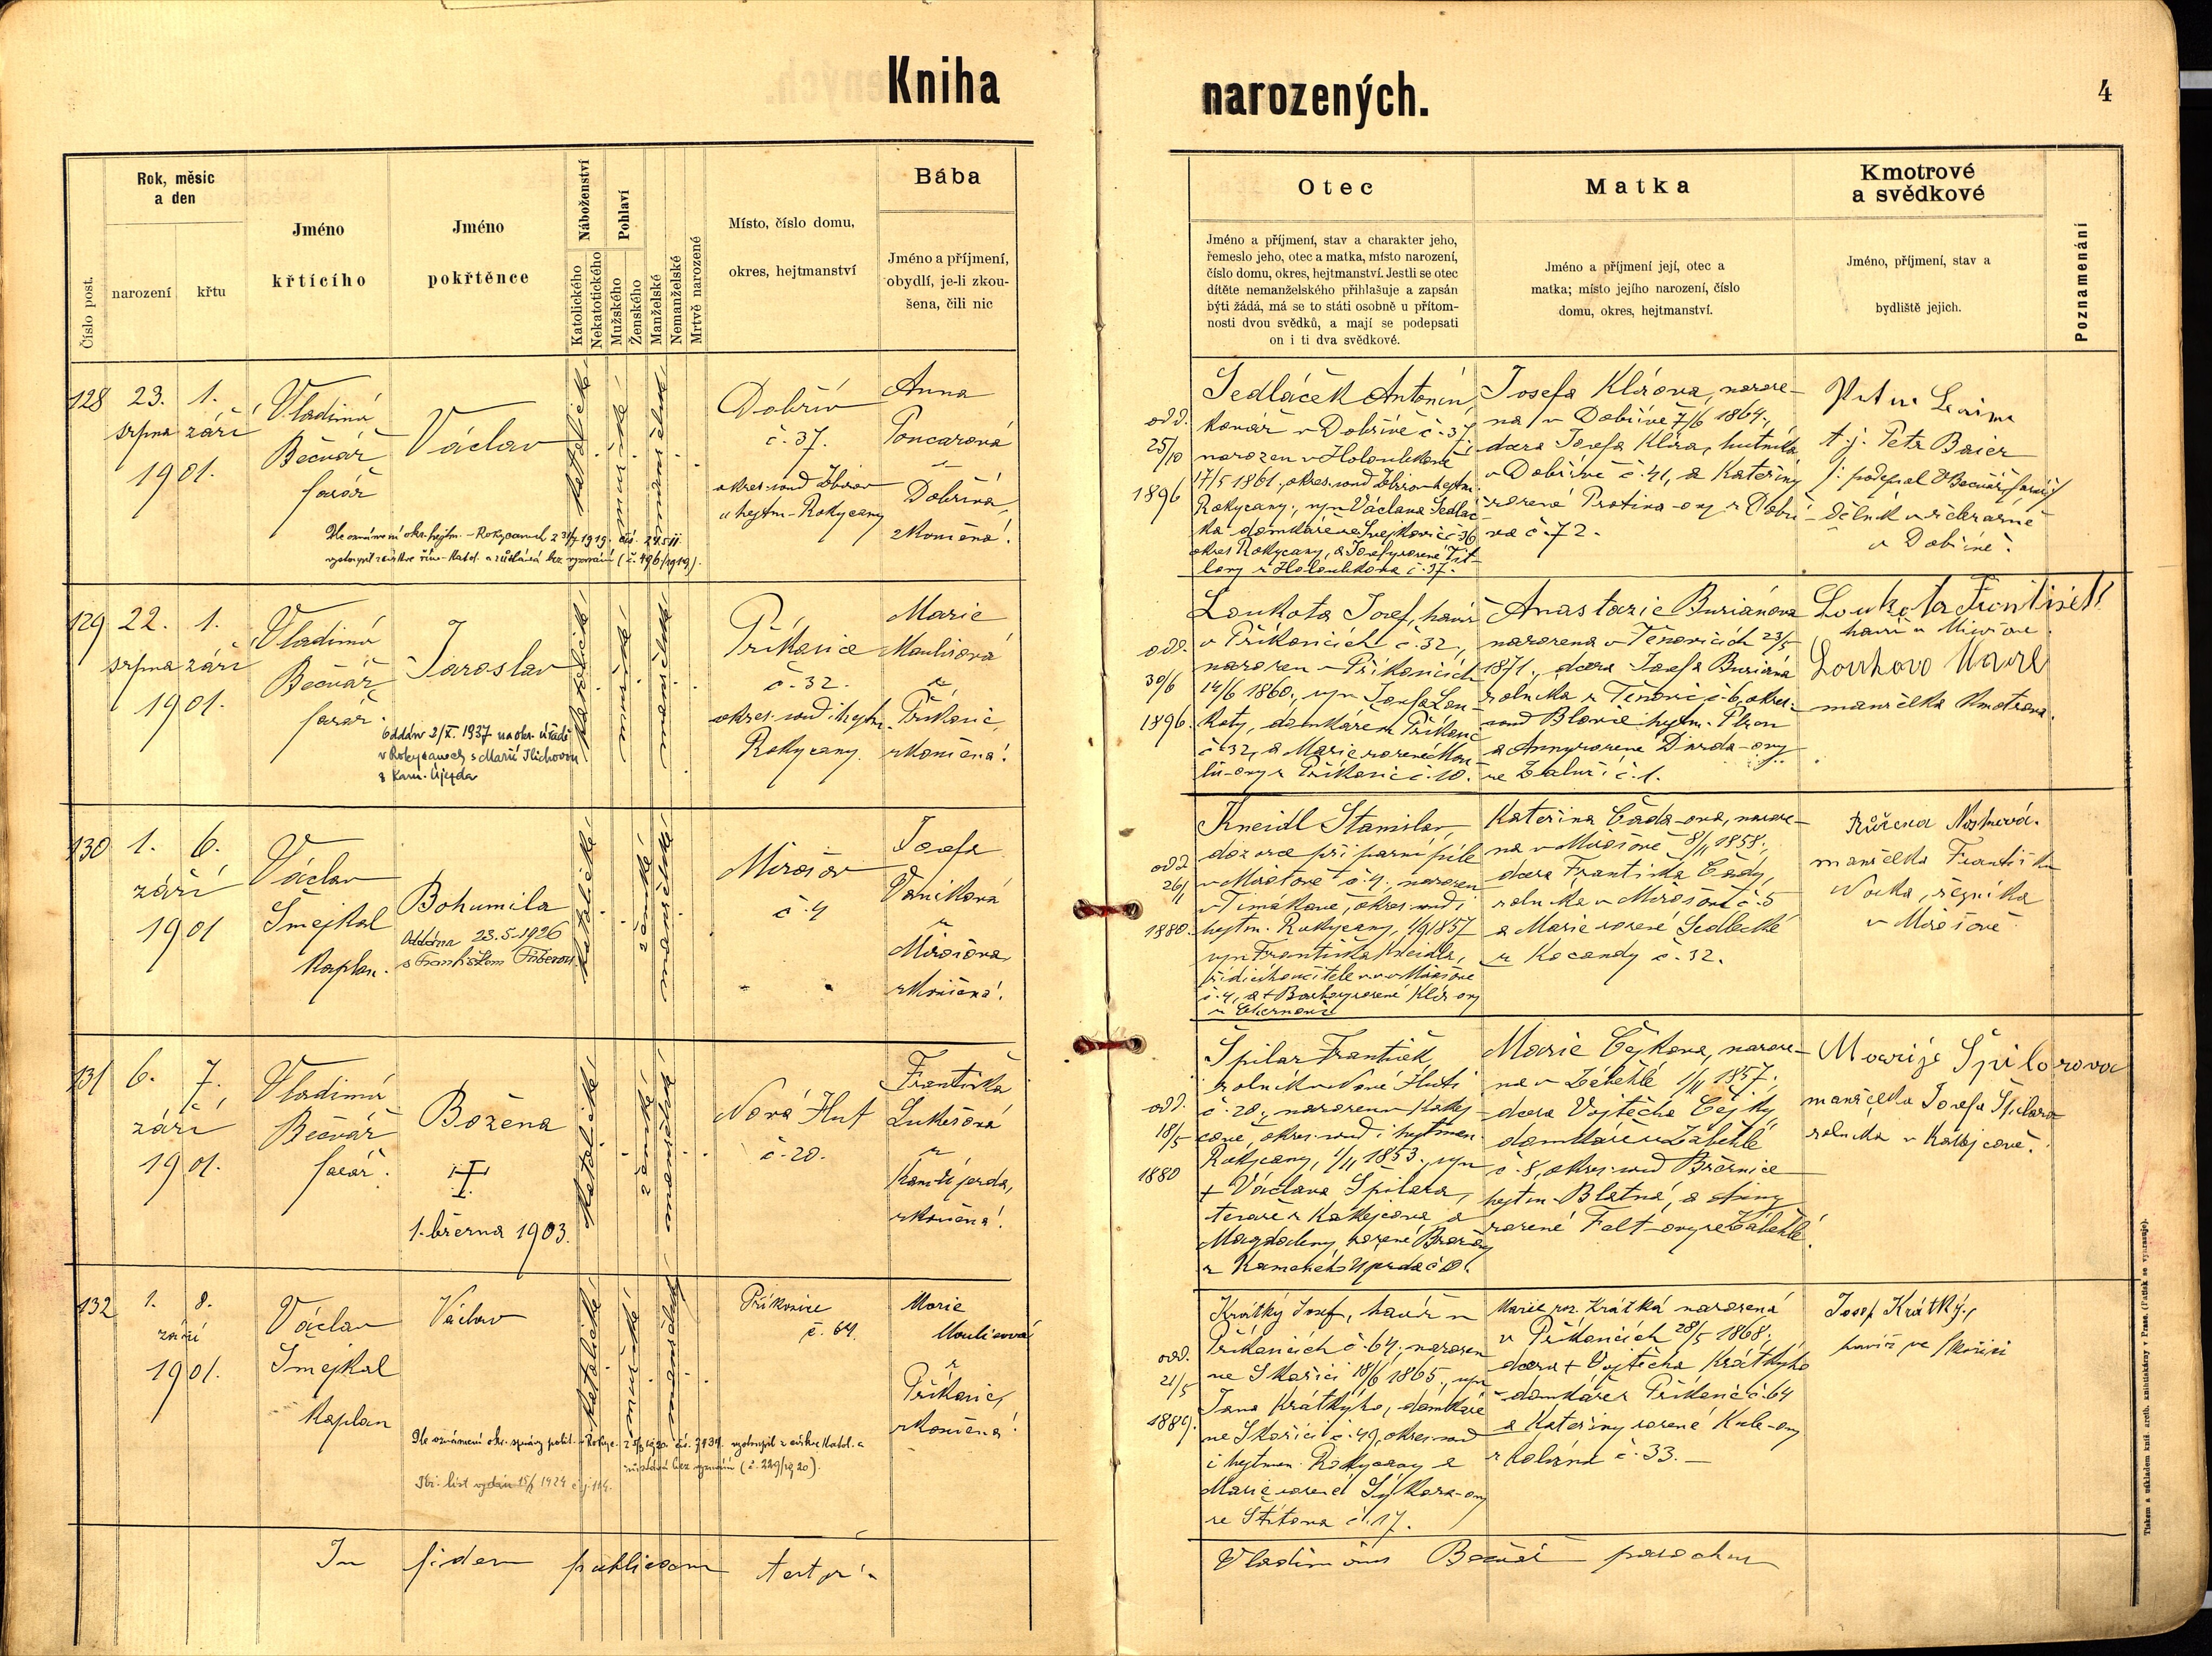 Kniha narozených.
4
Číslo post.
Rok, měsíc
a den
narození
křtu
Jméno
křtícího
Jméno
pokřtěnce
Náboženství
Katolického
Nekatotického
Pohlaví
Mužského
Ženského
Manželské
Nemanželské
Mrtvě narozené
Místo, číslo domu,
okres, hejtmanství
Bába
Jméno a příjmení,
obydlí, je-li zkou-
šena, čili nic
Otec
Jméno a příjmení, stav a charakter jeho,
řemeslo jeho, otec a matka, místo narození,
číslo domu, okres, hejtmanství. Jestli se otec
dítěte nemanželského přihlašuje a zapsán
býti žádá, má se to státi osobně u přítom-
nosti dvou svědků, a mají se podepsati
on i ti dva svědkové.
Matka
Jméno a příjmení její, otec a
matka; místo jejího narození, číslo
domu, okres, hejtmanství.
Kmotrové
a svědkové
Jméno, příjmení, stav a
bydliště jejich.
Poznamenání
128
23.
srpna
1.
září
1901.
Vladimír
Bečvář
farář
Václav
katolické
mužské
manželské
Dobřív
č. 37.
okres. soud Zbirov
a hejtm. Rokycany
Anna
Poncarová
z
Dobříva,
zkoušená!
Dle oznámení okr. hejtm. Rokycanech z 1919. čís.
vystoupil z církve řím. katol. a zůstává bez vyznání (č. 496/1919).
odd.
25/10
1896
Sedláček Antonín,
kovář v Dobřívě č. 37.
narozen v Holoubkově
17/5 1861., okres. soud Zbirov hejtm.
Rokycany, syn Václava Sedláč-
ka domkáře ve Svejkovicích 36
okres Rokycany, a Josefy rozené
z Holoubkova č. 37.
Josefa Klírova, naroze-
na v Dobřívě 7/6 1864.,
dcera Josefa Klíra, hutníka
v Dobřívě č. 41, a Kateřiny
rozené z Dobří-
va č. 72.
t. j. Petr Baier
j. podepsal VBečvář farář
dělník
v Dobřívě.
129
22.
srpna
1.
září
1901.
Vladimír
Bečvář
farář.
Jaroslav
Oddán 2/X. 1937 na okr. úřadě
v Rokycanech s Marií Jlichovou
z Kam. Újezda
katolické
mužské
manželské
Příkosice
č. 32.
okres. soud i hejtm.
Rokycany.
Marie
Moulisová
z
Příkosic
zkoušená!
odd.
30/6
1896.
Loukota Josef, havíř
v Příkosicích č. 32,
narozen v Příkosicích
14/6 1860., syn Josefa Lou-
koty, domkáře z Příkosic
č. 32, a Marie rozené Mou-
lis-ovy z Příkosic č. 10.
Anastazie Buriánova
narozena v Těnovicích 23/5
1871., dcera Josefa Buriána
rolníka z Těnovic č. 6, okres.
soud Blovice hejtm. Plzeň
a Anny rozené Dúrda-ovy
ze Zaluží č. 1.
Loukota František
havíř v Mirošově.
manželka kmotrova.
130
1.
září
6.
1901
Václav
Smejkal
kaplan.
Bohumila
Oddána 23.5.1926
s Františkem
katolické
ženské
manželské
Mirošov
č. 4
Josefa
Vaníková
z
Mirošova
zkoušená!
odd.
26/1
1880.
Kneidl Stanislav,
dozorce při parní pile
v Mirošově č. 4., narozen
v Timákově, okres. soud i
hejtm. Rokycany, 1857
syn Františka Kneidla,
řídícího učitele v Mirošově
č. 4, a + Barbory rozené Klír-ovy
Kateřina Čada-ova, naroze-
na v Mirošově 8/11 1858.,
dcera Františka Čady,
rolníka v Mirošově č. 5
a Marie rozené Sedlecké
z Kocandy č. 32.
Růžena Noskova.
manželka Františka
Noska, řezníka
v Mirošově
131
6.
září
7.
1901.
Vladimír
Bečvář
farář.
Božena
1. března 1903.
katolické
ženské
manželské
Nová Huť
č. 20.
Františka
Lukešová
z
Kam. Újezda,
zkoušená!
odd.
18/5
1880
Špilar František
rolník v Nové Huti
č. 20., narozen v Kakej-
cově, okres. soud i hejtman.
Rokycany, 1/11 1853., syn
+ Václava Špilara,
tesaře z Kakejcova a
Magdaleny rozené
z Kamenného Újezda č.
Marie Čejkova, naroze-
na v Zábehlé 1/11 1857.,
dcera Vojtěcha Čejky,
domkáře v Zábehlé
č. 8, okres. soud Březnice
hejtm. Blatná, a
rozené Falt-ovy ze Zábehlé.
Marije Špilarova
manželka Josefa Špilara
rolníka v Kakejcově.
132
1.
září
8.
1901.
Václav
Smejkal
kaplan
Václav
Dle oznámení okr. správy polit. v Rokyc. 1920. čís. 7934. vystoupil z církve katol. a
zůstává bez vyznání (č. 229/1920).
1924
katolické
mužské
manželské
Příkosice
č. 64.
Marie
Moulisová
z
Příkosic,
zkoušená!
odd.
21/5
1889.
Krátký Josef, havíř v
Příkosicích č. 64., narozen
ve Skořici 18/6 1865., syn
Jana Krátkýho, domkáře
ve Skořici č. 49, okres. soud
i hejtman. Rokycany a
Marie rozené Sýkora-ovy
ze Štítova č. 17.
Marie roz. Krátká narozená
v Příkosicích 28/5 1868.,
dcera + Vojtěcha Krátkýho
domkáře z Příkosic č. 64
a Kateřiny rozené Kule-ovy
z Kolvína č. 33.
Josef Krátký,
havíř ve Skořici
In fidem publicam
Vladimirus Bečvář parochus
Tiskem a nákladem kníž. arcib. knihtiskárny v Praze. (Patisk se vyhrazuje).